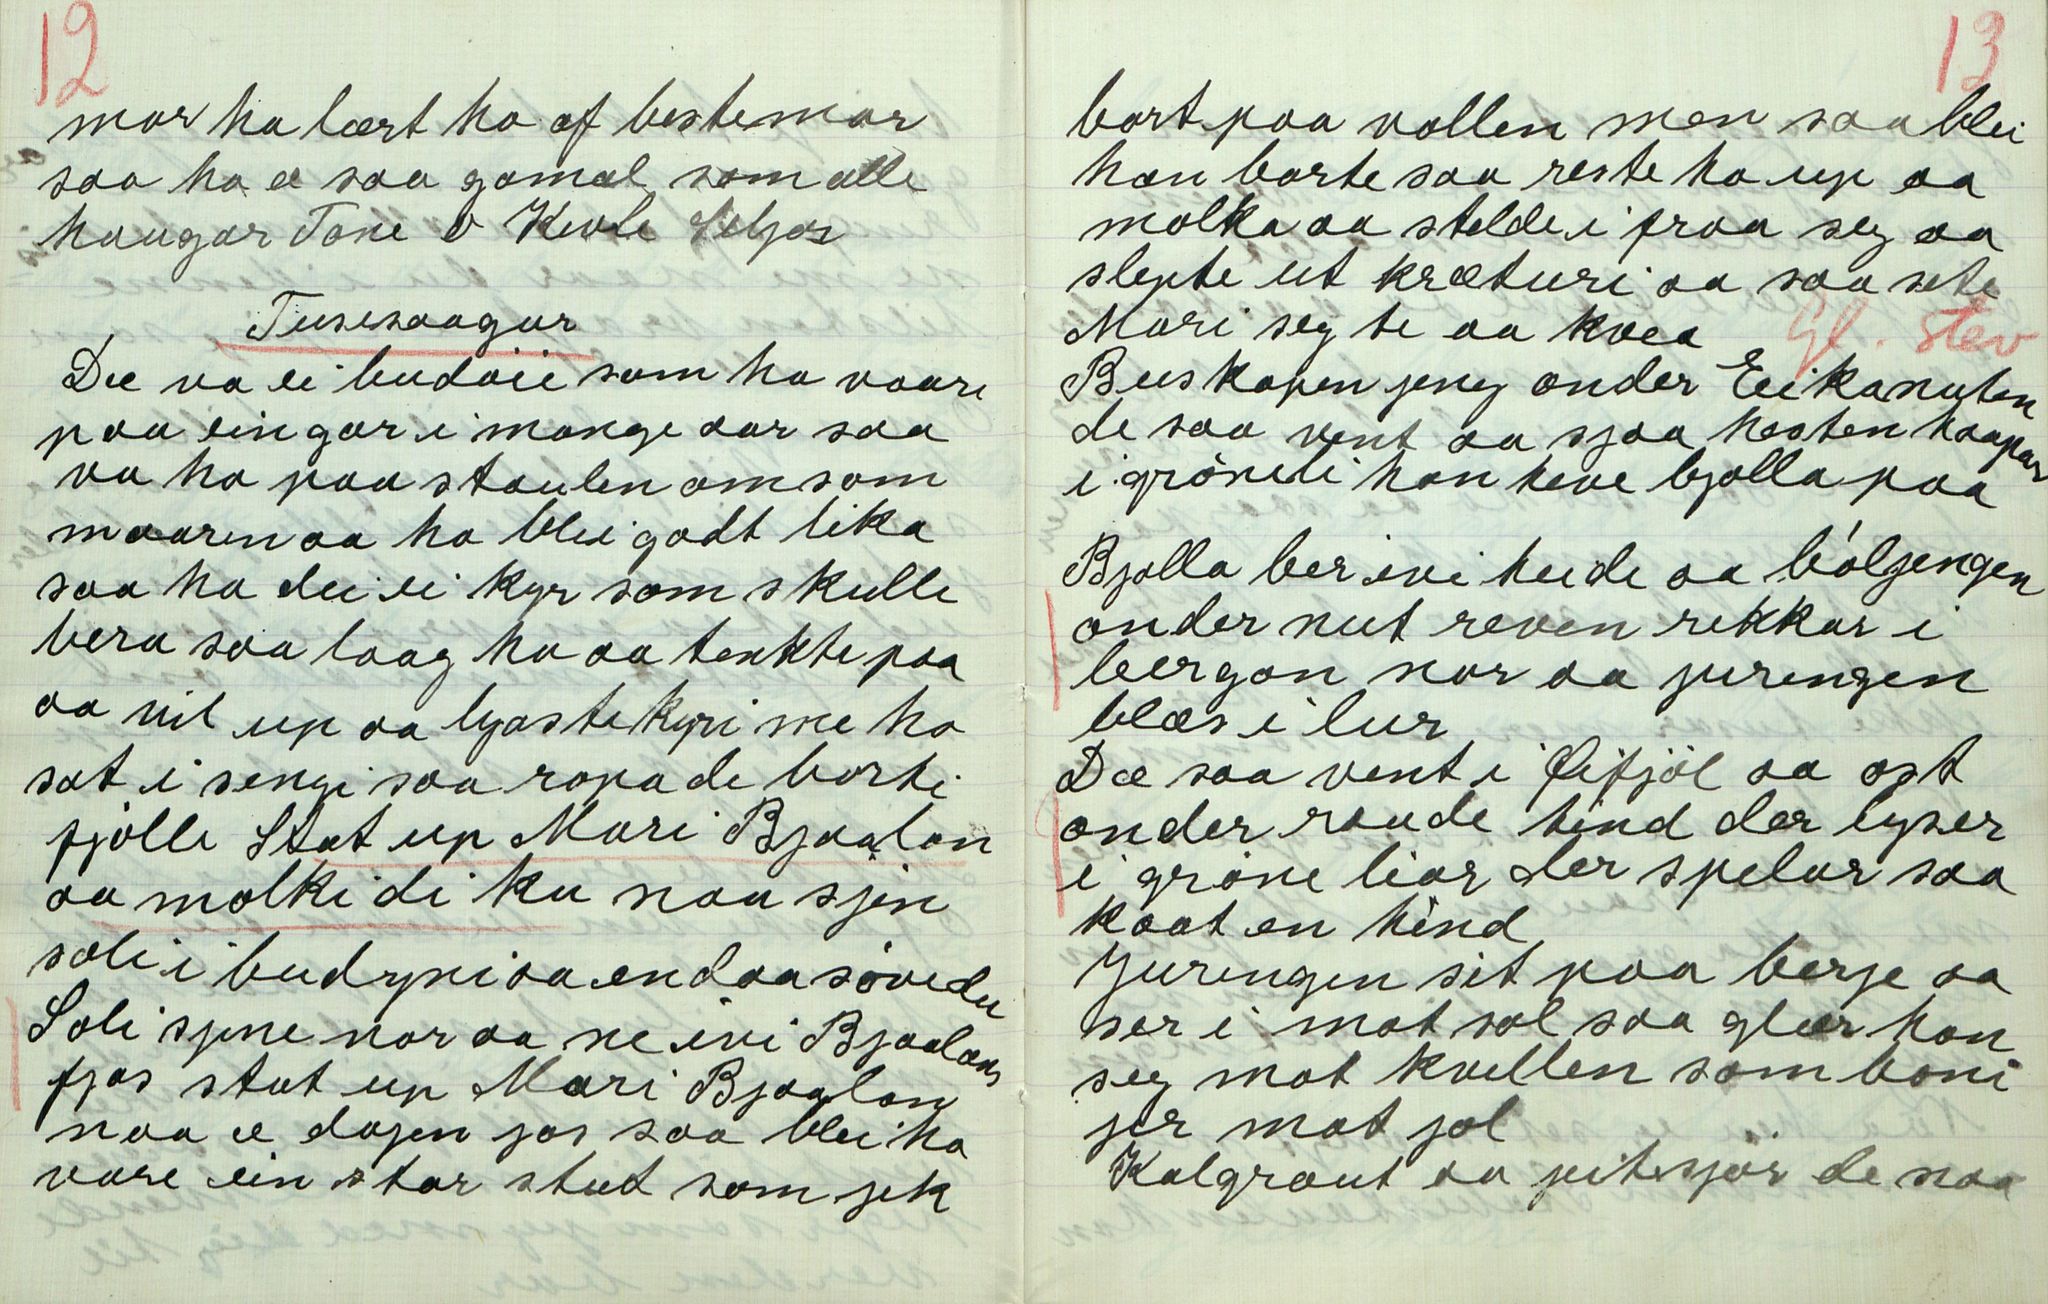 12
mor ha lært ho af bestemor
saa ho æ saa gomol som alle
haugar Tone
Tusesaagur
Dæ va ei budeie som ha vaare
paa ein gar i mange aar saa
va ho paa staulen om som
maaren aa ho blei godt lika
saa ha dei ei kyr som skulle
bera saa laag ho aa tenkte paa
aa vil up aa lyoste kyri me ho
sat i sengi saa ropa de borti
fjølle Stat up Mari Bjaalan
aa molki di ku naa sjin
soli i budryni aa endaa søve du
Soli sjine nor aa ne ivi Bjaalans
fjos stat up Mari Bjaalan
naa æ dagen jos saa blei ho
vare ein stor stut som jek
13
bort paa vollen men saa blei
han borte saa reste ho up aa
molka aa stelde i fraa seg aa
slepte ut kræturi aa saa sete
Mari seg te aa kvea
Gl. stev
Buskapen jeng onder Eikanuten
de saa vent aa sjaa hesten haapar
i grøneli han heve bjølla paa
Bjølla ber ivi heide aa bølgengen
onder nut reven rekkar i
bergan nor aa jurengen
blæs i lur
Dæ saa vent i aa ost
onder raude tind der lyser
i grøne liar der spelar saa
kaat en hind
Jurengen sit paa berje aa
ser i mot sol saa glær han
seg mot kvellen som boni
jer mot jol
Kolgraut aa de naa